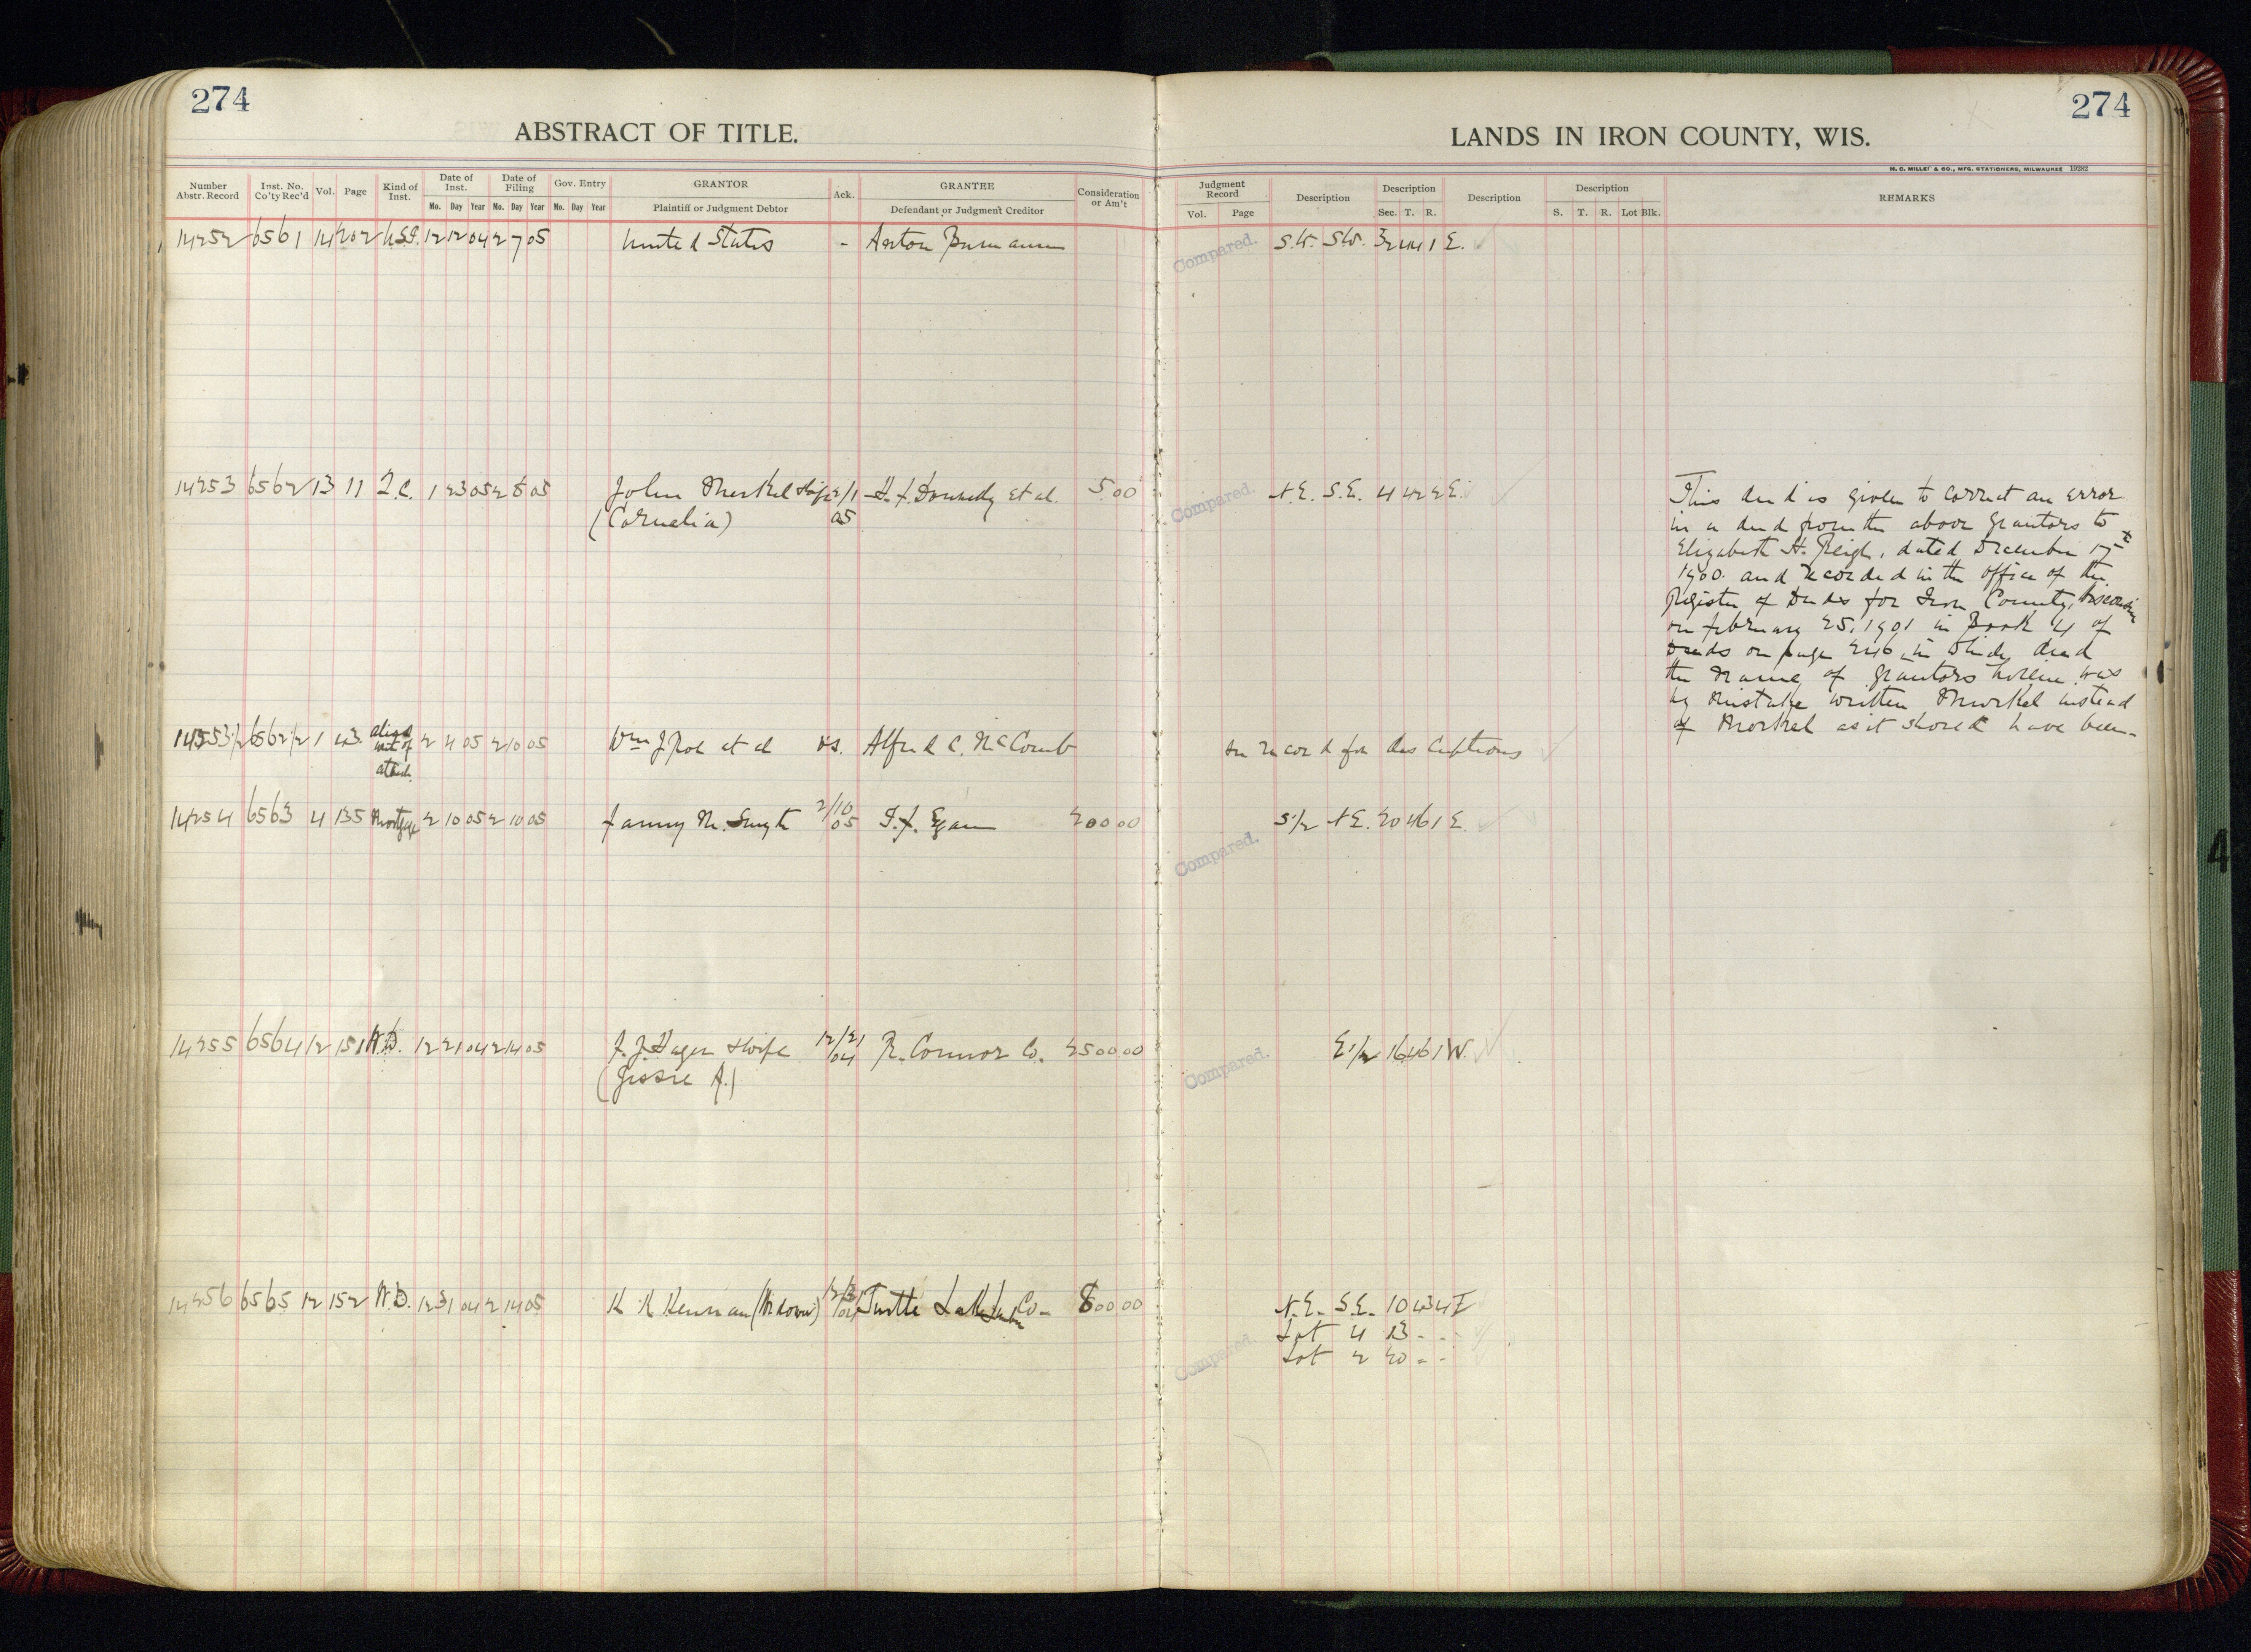 274
274
ABSTRACT OF TITLE.
LANDS IN IRON COUNTY, WIS.
H. C. MILLER & CO., MFG. STATIONERS, MILWAUKEE 19282
Number Abstr. Record Inst. No. Co'ty Rec'd Vol. Page Kind of Inst. Date of Inst. Date of Filing Gov. Entry GRANTOR Ack. GRANTEE Consideration or Am't Judgment Record Description Description Description Description REMARKS
Mo. Day Year Mo. Day Year Mo. Day Year Plaintiff or Judgment Debtor Defendant or Judgment Creditor Vol. Page Sec. T. R. S. T. R. Lot Blk.
14252 6561 14 202 12 12 04 2 7 05 United States - Anton Compared. S.W. SW. 32 44 1 E.
14253 6562 13 11 Q.C. 1 23 05 2 8 05 John Merkel & wife 2/1 H. F. Donnelly et al. 5.00 Compared. N.E. S.E. 4 42 2 E.
(Cornelia) 05
This deed is given to correct an error
in a deed from the above grantors to
Elizabeth H. Reigh, dated December 17th
1900. and recorded in the office of the
Register of Deeds for Iron County, Wisconsin
on February 25, 1901 in Book 4 of
Deeds on page 246 in which deed
the name of grantors herein was
by mistake written instead
of Merkel as it should have been.
14253 1/2 6562 1/2 1 43 alias writ of attach. 2 4 05 2 10 05 Wm J Roe et al vs. Alfred C. McComb see record for descriptions
14254 6563 4 135 Mortgage 2 10 05 2 10 05 Fanny M. Smyth 2/10 05 T. F. Egan 200 00 Compared. S 1/2 N.E. 20 46 1 E.
14255 6564 12 151 W.D. 12 21 04 2 14 05 & wife 12/21 04 R. Connor Co. 2500 00 Compared. E 1/2 16 46 1 W.
(Jessie A.)
14256 6565 12 152 W.D. 12 31 04 2 14 05 K K Kennan (Widower) 12/31 04 Turtle Lake Lumber Co. 800 00 Compared. N.E. S.E. 10 43 4 E
Lot 4 13 - -
Lot 2 20 - -